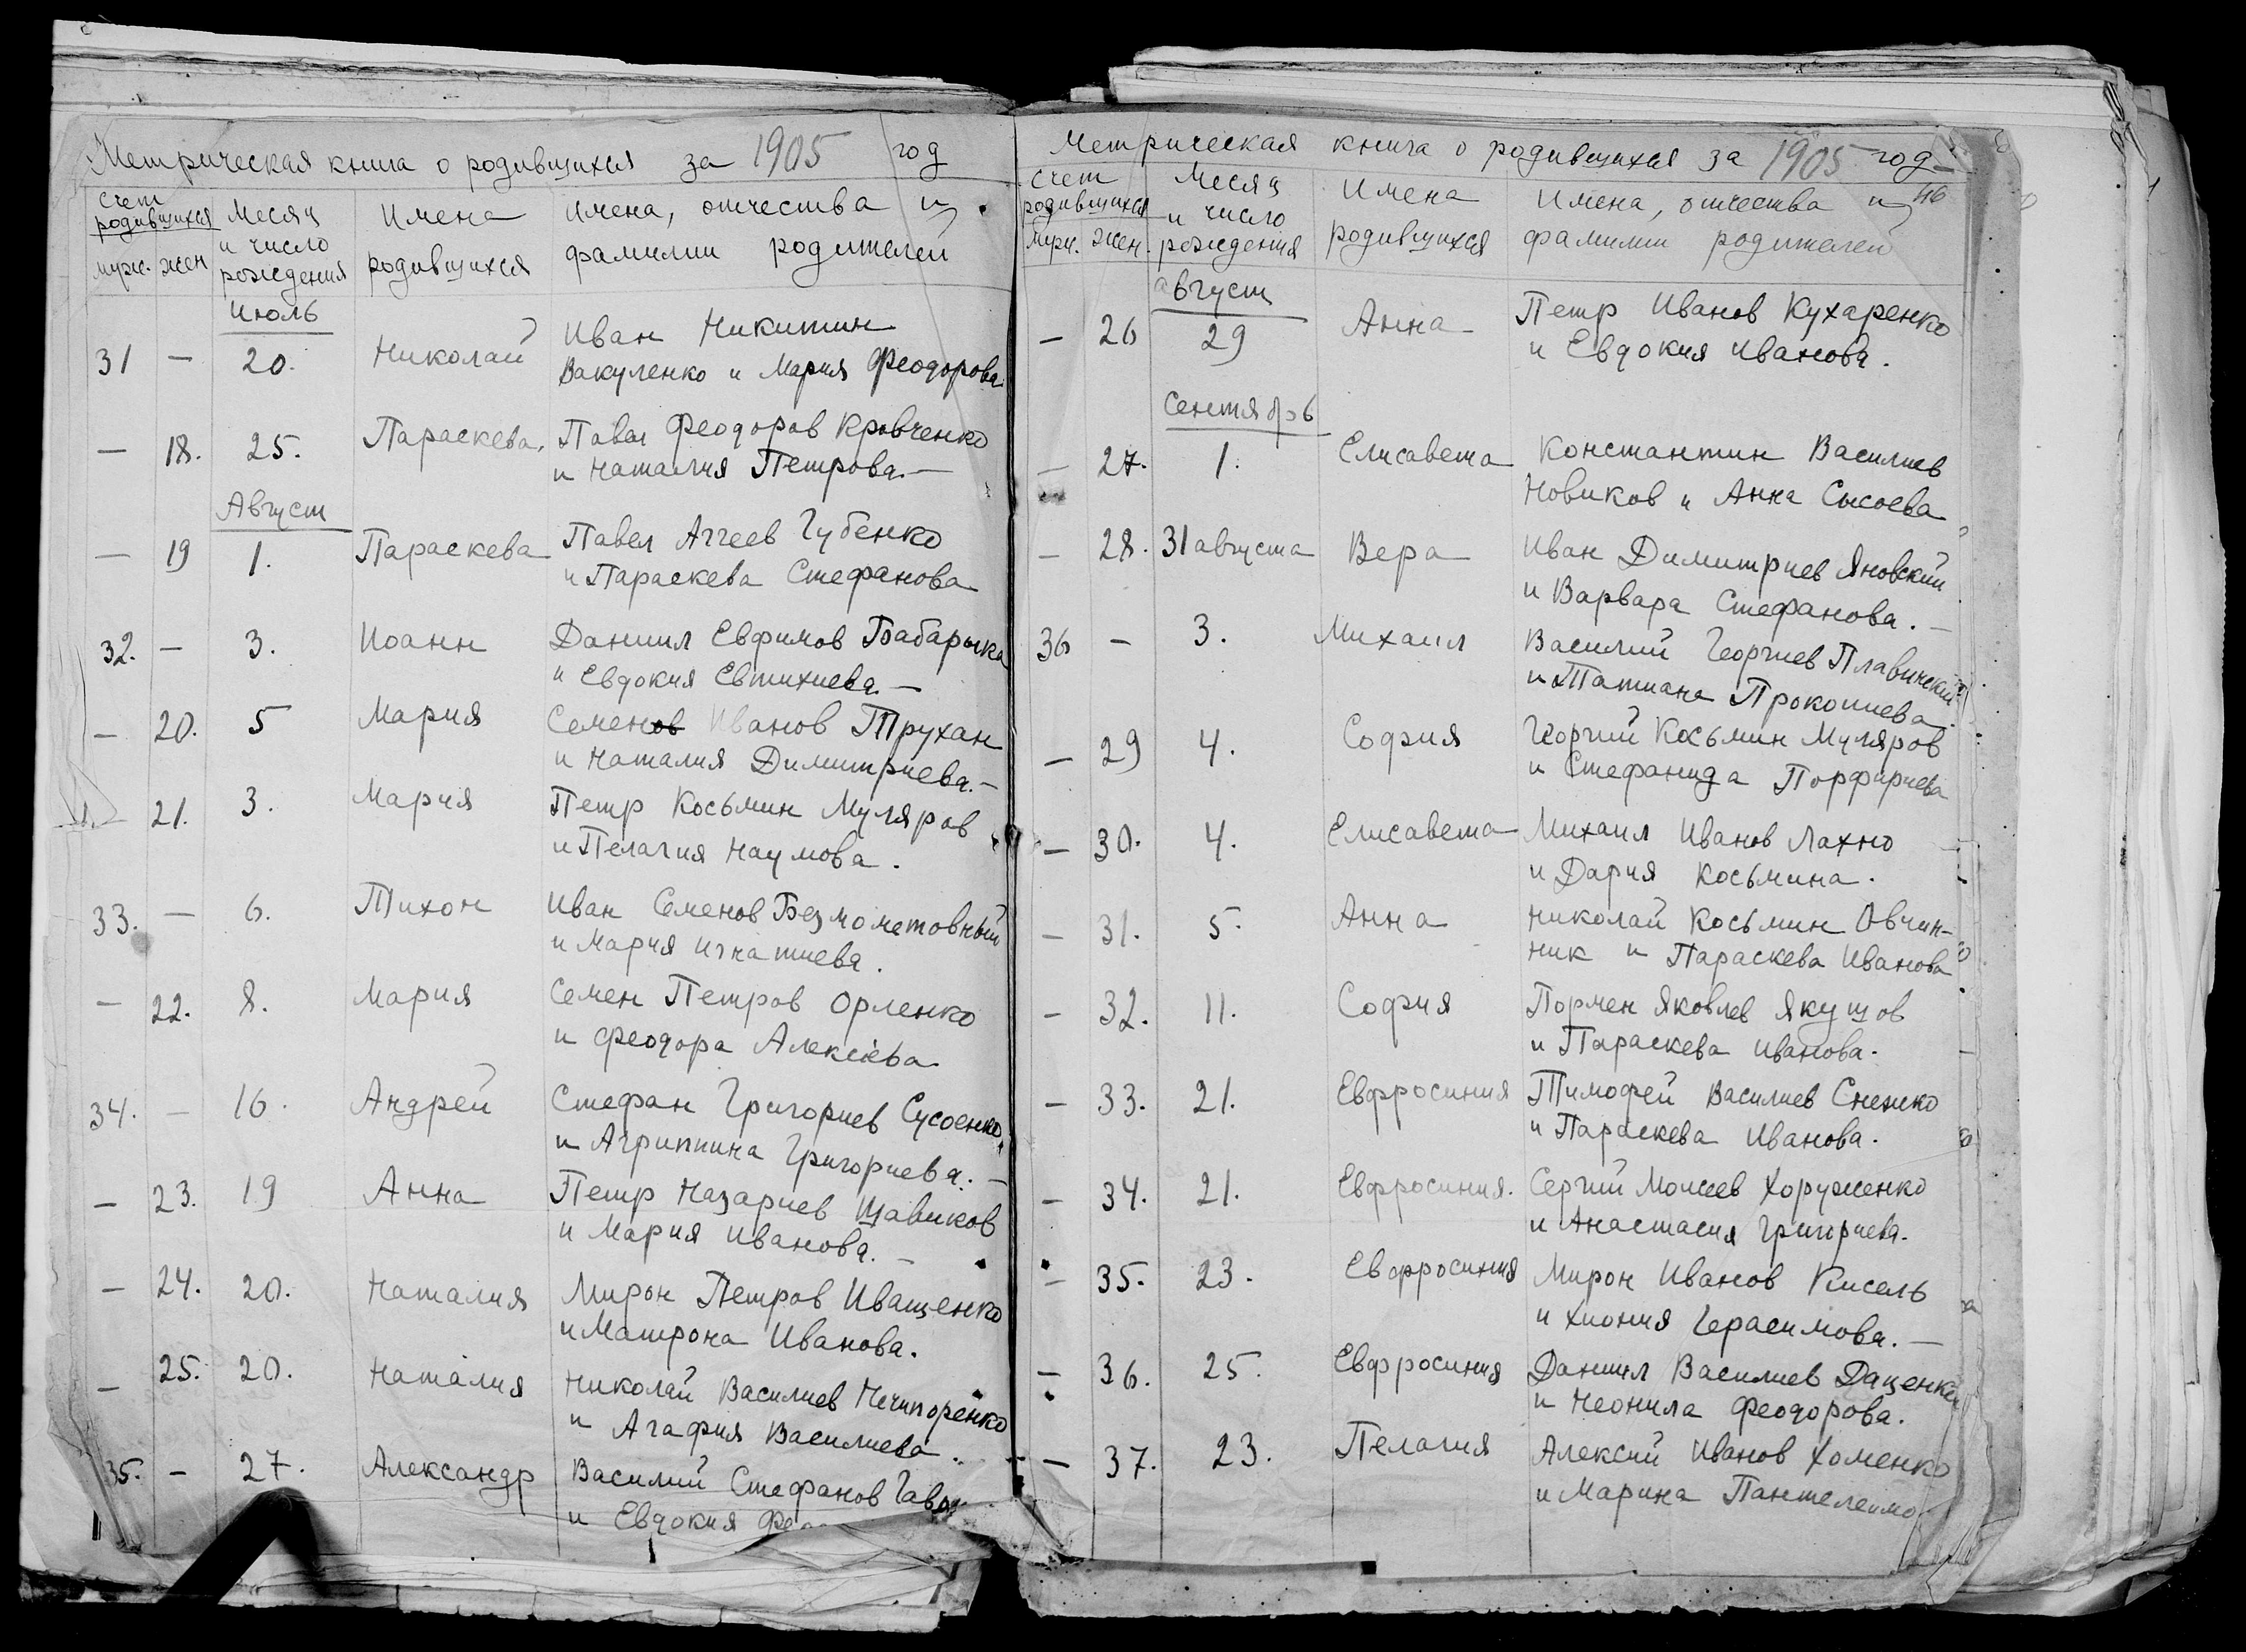 Метрическая книга о родившихся за 1905 год
счет родившихся
муж. жен
Месяц и число рождения
Имена родившихся
Имена, отчества и фамилии родителей
Июль
31 — 20. Николай Иван Никитин
Вакуленко и Мария Феодорова.
— 18. 25. Параскева. Павел Феодоров Кровченко
и Наталия Петрова. —
Август
— 19 1. Параскева Павел Аггеев Губенко
и Параскева Стефанова
32. — 3. Иоанн Даниил Евфимов Бабарыка
и Евдокия Евтихиева. —
— 20. 5 Мария Семенов Иванов Трухан
и Наталия Димитриева. —
— 21. 3. Мария Петр Косьмин Муляров
и Пелагия Наумова.
33. — 6. Тихон Иван Семенов Безмометовный
и Мария Игнатиева.
— 22. 8. Мария Семен Петров Орленко
и Феодора Алексиева
34. — 16. Андрей Стефан Григориев Сусоенко
и Агриппина Григориева. —
— 23. 19 Анна Петр Назариев Щавиков
и Мария Иванова. —
— 24. 20. Наталия Мирон Петров Иващенко
и Матрона Иванова.
— 25. 20. Наталия Николай Василиев Нечипоренко
и Агафия Василиева.
35. — 27. Александр Василий Стефанов
и Евдокия
Метрическая книга о родившихся за 1905 год
46
счет родившихся
муж. жен.
Месяц и число рождения
Имена родившихся
Имена, отчества и фамилии родителей
август
— 26 29 Анна Петр Иванов Кухаренко
и Евдокия Иванова.
Сентябрь
— 27. 1. Елисавета Константин Василиев
Новиков и Анна Сысоева
— 28. 31 августа Вера Иван Димитриев Яновский
и Варвара Стефанова. —
36 — 3. Михаил Василий Георгиев Плавинский
и Татиана Прокопиева.
— 29 4. София Георгий Косьмин Муляров
и Стефанида Порфириева
— 30. 4. Елисавета Михаил Иванов Лахно
и Дария Косьмина.
— 31. 5. Анна Николай Косьмин Овчин-
ник и Параскева Иванова
— 32. 11. София Пормен Яковлев Якушов
и Параскева Иванова.
— 33. 21. Евфросиния Тимофей Василиев Снежко
и Параскева Иванова.
— 34. 21. Евфросиния. Сергий Моисеев Хоруженко
и Анастасия Григориева.
— 35. 23. Евфросиния Мирон Иванов Кисель
и Хиония Герасимова. —
— 36. 25. Евфросиния Даниил Василиев Даценко
и Неонила Феодорова.
— 37. 23. Пелагия Алексий Иванов Хоменко
и Марина Пантелеимо